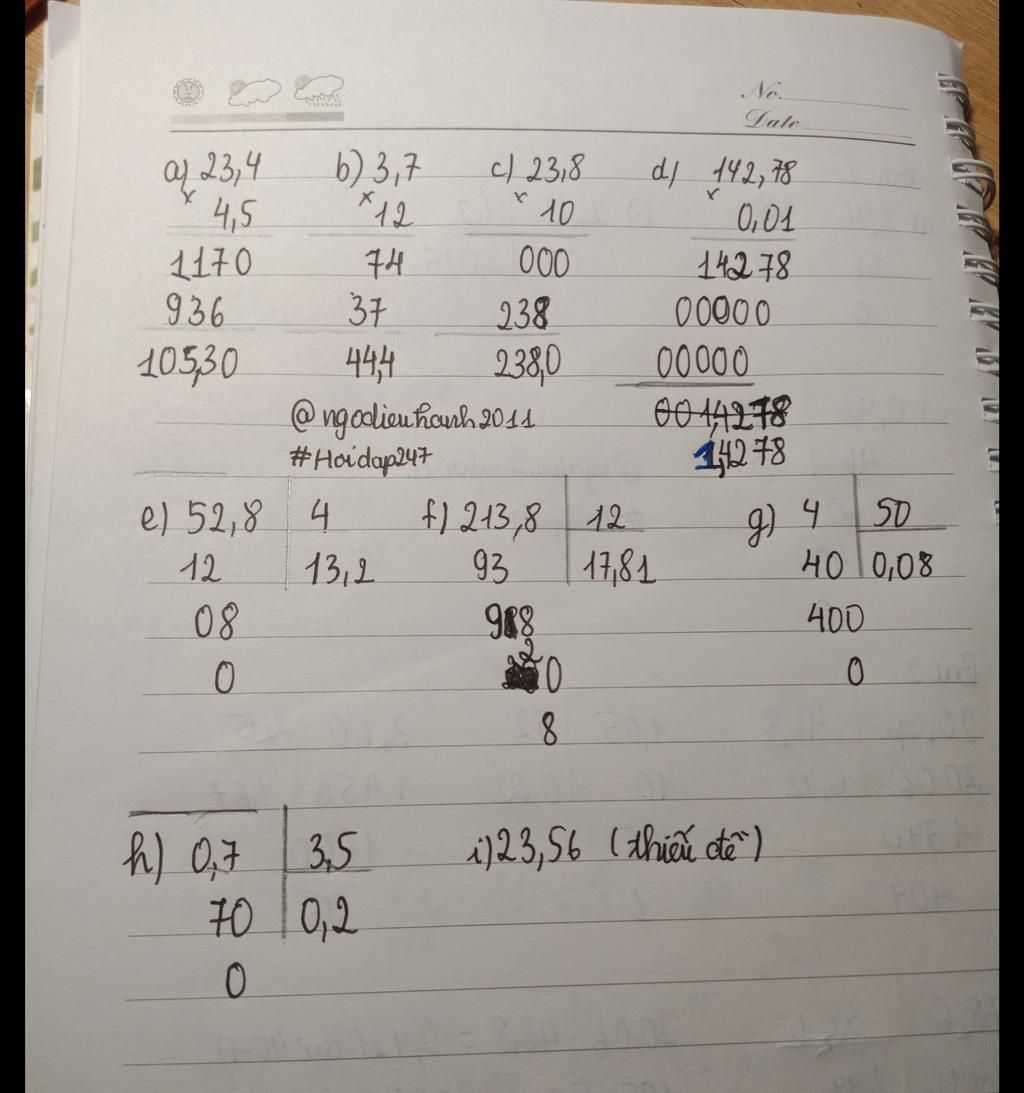 No.
Date
a) 23,4 b) 3,7 c) 23,8 d) 142,78
x 4,5 x 12 x 10 x 0,01
1170 74 000 14278
936 37 238 00000
105,30 44,4 238,0 00000
@ngodieuhanh2011 001,4278
#Hoidap247 1,4278
e) 52,8 4 f) 213,8 12 g) 4 50
12 13,2 93 17,81 40 0,08
08 98 400
0 20 0
8
h) 0,7 3,5 i) 23,56 (thiếu đề)
70 0,2
0